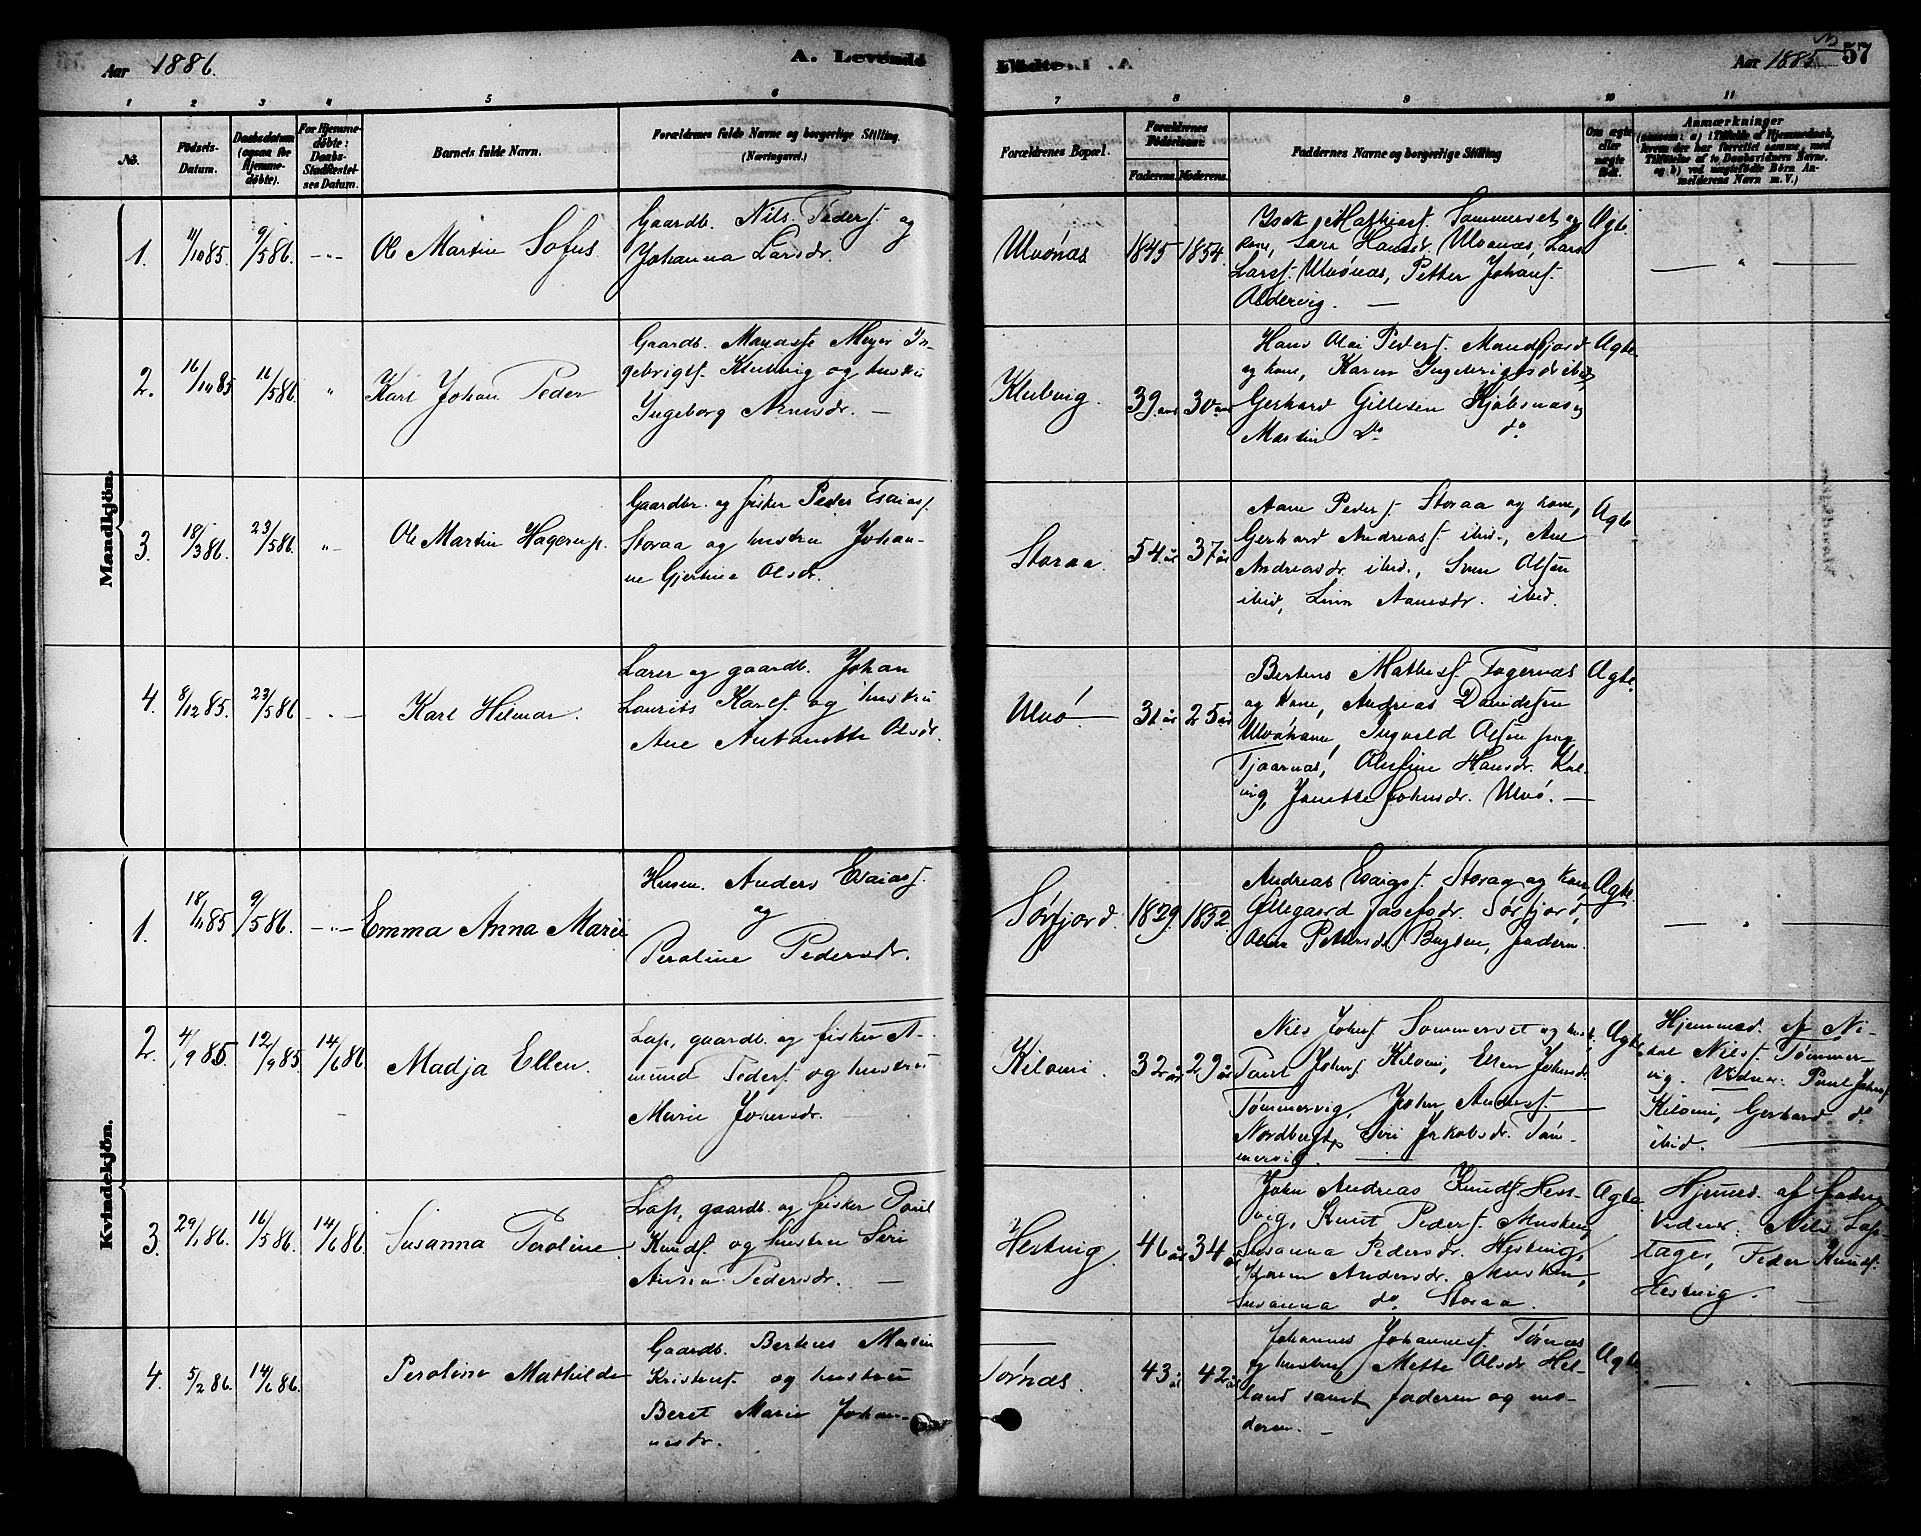 Aar 1886. A. Levende
Fødte. Aar 1885 57
1 2 3 4 5 6 7 8 9 10 11
No.
Fødsels-
Datum.
Daabsdatum
(ogsaa for
Hjemme-
døbte).
For Hjemme-
døbte:
Daabs-
Stadfæstel-
ses Datum.
Barnets fulde Navn.
Forældrenes fulde Navne og borgerlige Stilling.
(Næringsvei.)
Forældrenes Bopæl.
Forældrenes
Fødselsaar.
Faderens. Moderens.
Faddernes Navne og borgerlige Stilling
Om ægte
eller
uægte
født.
Anmærkninger
(saasom: a) i Tilfælde af Hjemmedaab,
hvem der har forrettet samme, med
Tilføielse af to Daabsvidners Navne.
og b) ved uægtefødte Børn An-
melderens Navn m. V.)
Mandkjön.
1. 11/10 85. 9/5 86. -"- Ole Martin Sofus
Gaardb. Nils Peders. og
Johanna Larsdr.
Ulvönæs 1845 1854.
Isak Mathiess. Sommerset og
kone, Lars Ulvönæs, Lars
Larss. Ulvönæs, Petter Johans.
Aldervig. —
Ægte.
— " —
2. 16/10 85 16/5 86. " Karl Johan Peder
Gaardb. Manasse Meyer In-
gebrigts. Klubvig og hustru
Ingeborg Arnesdr. —
Klubvig. 39 aar 30 aar
Hans Olai Peders. Mandfjord
og kone, Karen Ingebrigtsdr ibid,
Gerhard Gillesen Kjöbsnæs og
Martin Do do
Ægte.
3. 18/3 86. 23/5 86. " Ole Martin Hagerup.
Gaardbr. og fisker Peder Esaias.
Storaa og hustru Johan-
ne Gjertine Olsdr.
Storaa. 54 år 37 år
Aane Peders. Storaa og kone,
Gerhard Andreass. ibid., Ane
Andreasdr. ibid., Sven Olsen
ibid, Aanesdr. ibid.
Ægte
4. 8/12 85. 23/5 86 -"- Karl Hilmar.
Lærer og gaardb. Johan
Laurits Karls. og hustru
Ane Antonette Olsdr.
Ulvö. 31 år 25 år
Berteus Mathiss. Fagernæs
og kone, Andreas Davidsen
Ulvöhavn, Ingvald Olsen
Tjaarnæs, Hansdr. Kal-
vig, Janette Johnsdr. Ulvö. —
Ægte.
Kvindekjön.
1. 18/11 85 9/5 86. -"- Emma Anna Marie
Husm. Anders Esaias.
og
Peroline Pedersdr.
Sörfjord. 1829. 1852
Andreas Esaigs. Storaa og Kone,
Ellegaard Josefsdr. Sörfjord,
Faderen.
Ægte
— " —
2. 4/9 85. 12/9 85. 14/6 86. Madja Ellen.
Lap, gaardb. og fisker A-
mund Peders. og hustru
Marie Johnsdr. —
Kilovri. 32 år 29 år
Nils Johns. Sommerset og hust.
Paul Johns. Kilovri, Ellen Johnsdr.
Tömmervig, John Anders.
Siri Jakobsdr. Töm-
mervig. —
Ægte
Hjemmed. af Ni-
kol Nils. Tömmer-
vig. Vidner: Paul Johns.
Kilovri, Gerhard do
ibid. —
3. 29/1 86. 16/5 86. 14/6 86. Susanna Peroline
Lap, gaardb. og fisker Poul
Knuds. og hustru Siri
Anna Pedersdr. —
Hestvig. 46 år 34 år
John Andreas Knuds. Hest-
vig, Knut Peders. Musken,
Susanna Pedersdr. Hestvig,
Karen Andersdr. Musken,
Susanna do. Storaa.
Ægte
Hjemmed. af faderen.
Vidner. Nils Lap-
tager, Peder Knuds.
Hestvig. —
4. 5/2 86. 14/6 86. Peroline Mathilde
Gaardb. Berteus Martin
Kristens. og hustru
Beret Marie Johan-
nesdr.
Törnæs. 43 år 42 år
Johannes Johannes. Törnæs
og hustru Mette Olsdr. Hel-
land samt faderen og mo-
deren. —
Ægte
— " —